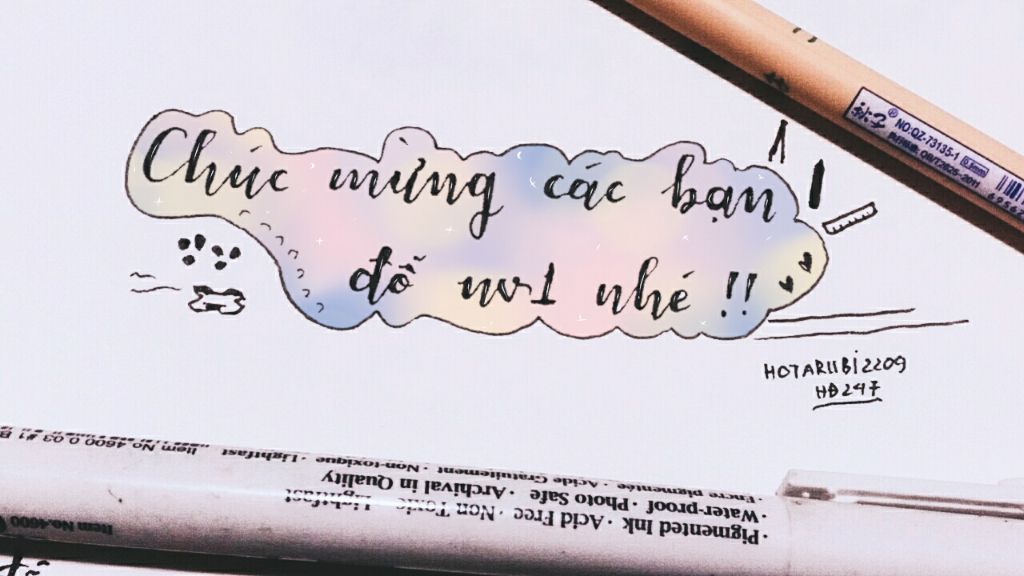 Chúc mừng các bạn
đỗ nv1 nhé !!
HOTARUBI2209
HĐ247
NO:QZ-73135-1 0.5mm
QB/T2625-2011
· Encre pigmentée · Acide Gratuitement · Non-toxique · Lightfast
Item No.4600 0.03 #1 B
· Water-proof · Photo Safe · Archival in Quality
· Pigmented Ink · Acid Free · Non Toxic · Lightfast
Item No.4600
đỗ